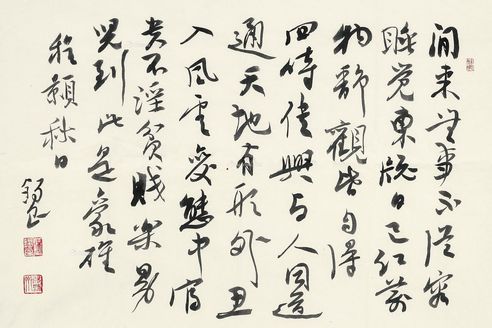 閒来無事不從容
睡觉東窗日已红萬
物静觀皆自得
四時佳興与人同道
通天地有形外思
入風雲變態中富
贵不淫貧賤樂男
兒到此是豪雄
程颢秋日